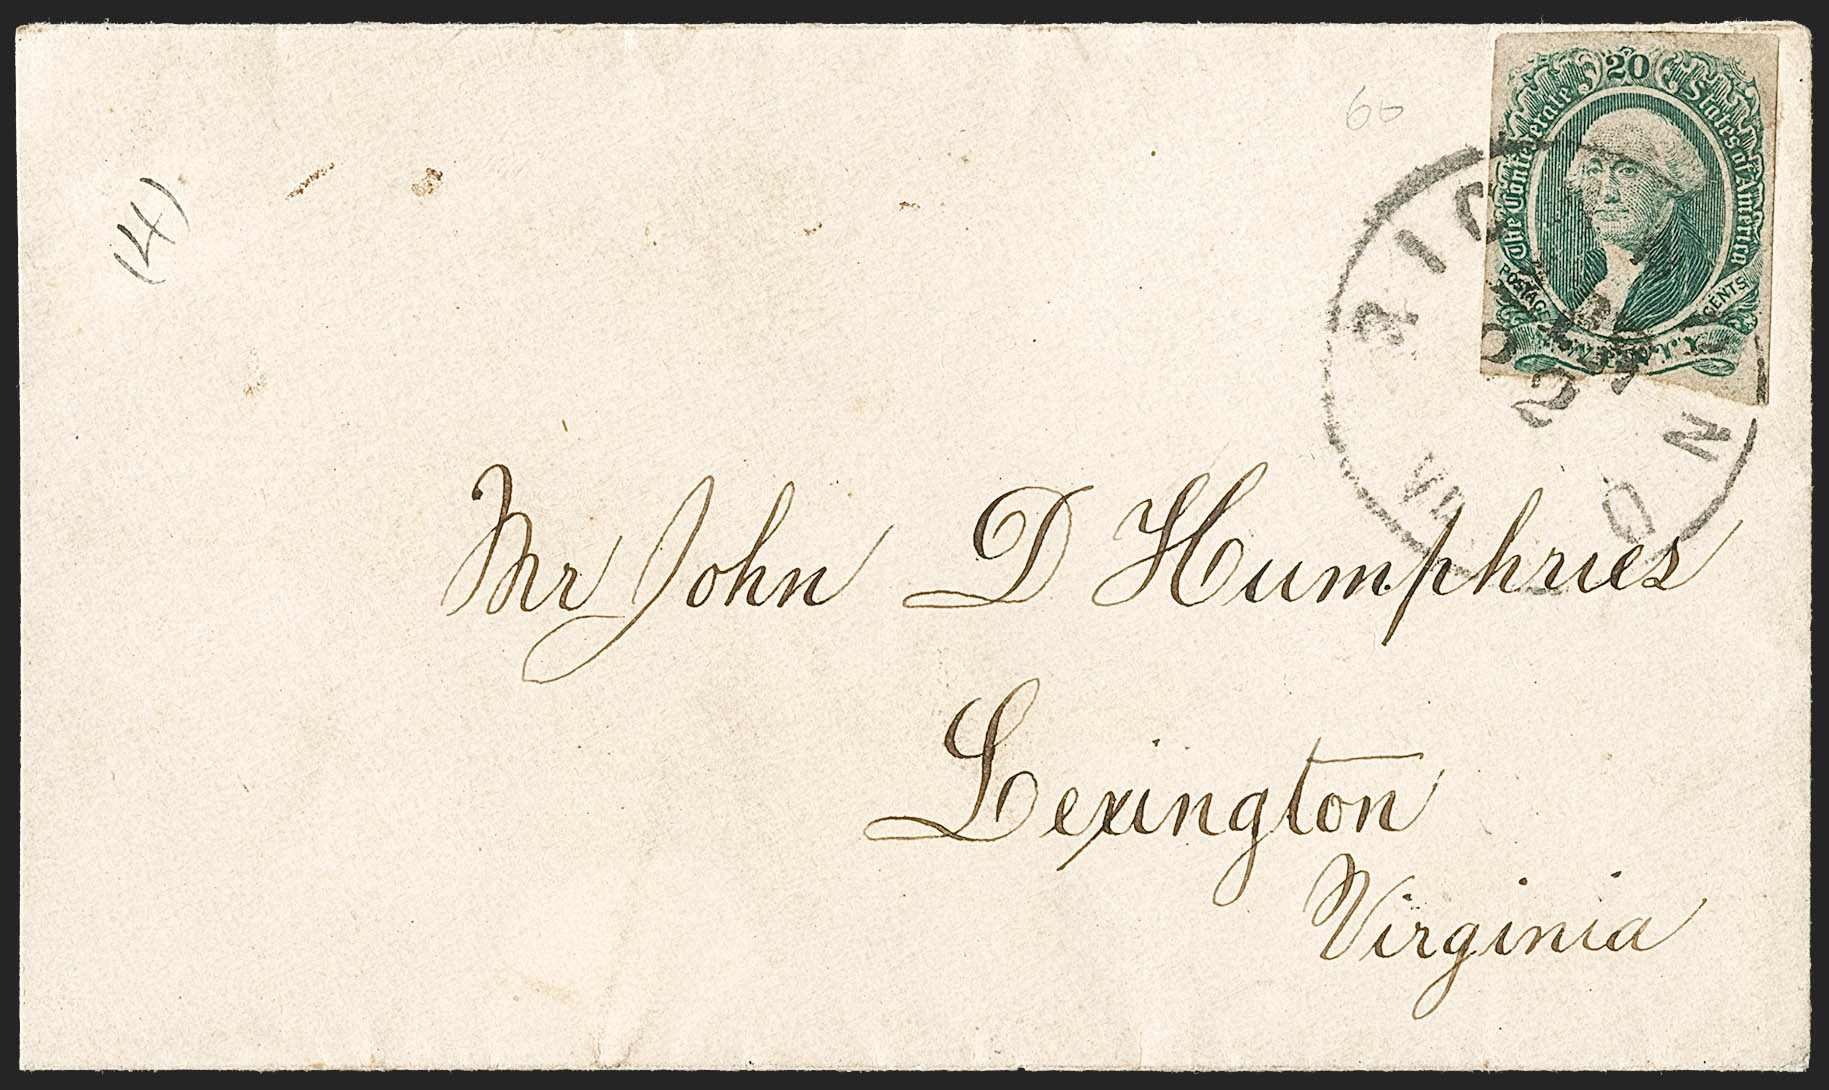 (4)
60
20
The Confederate States of America
POSTAGE CENTS
TWENTY
RICHMOND
VA
2
Mr John D Humphries
Lexington
Virginia